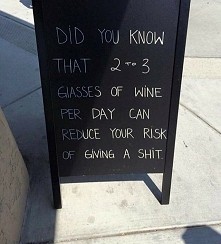 DID YOU KNOW
THAT 2 TO 3
GLASSES OF WINE
PER DAY CAN
REDUCE YOUR RISK
OF GIVING A SHIT.